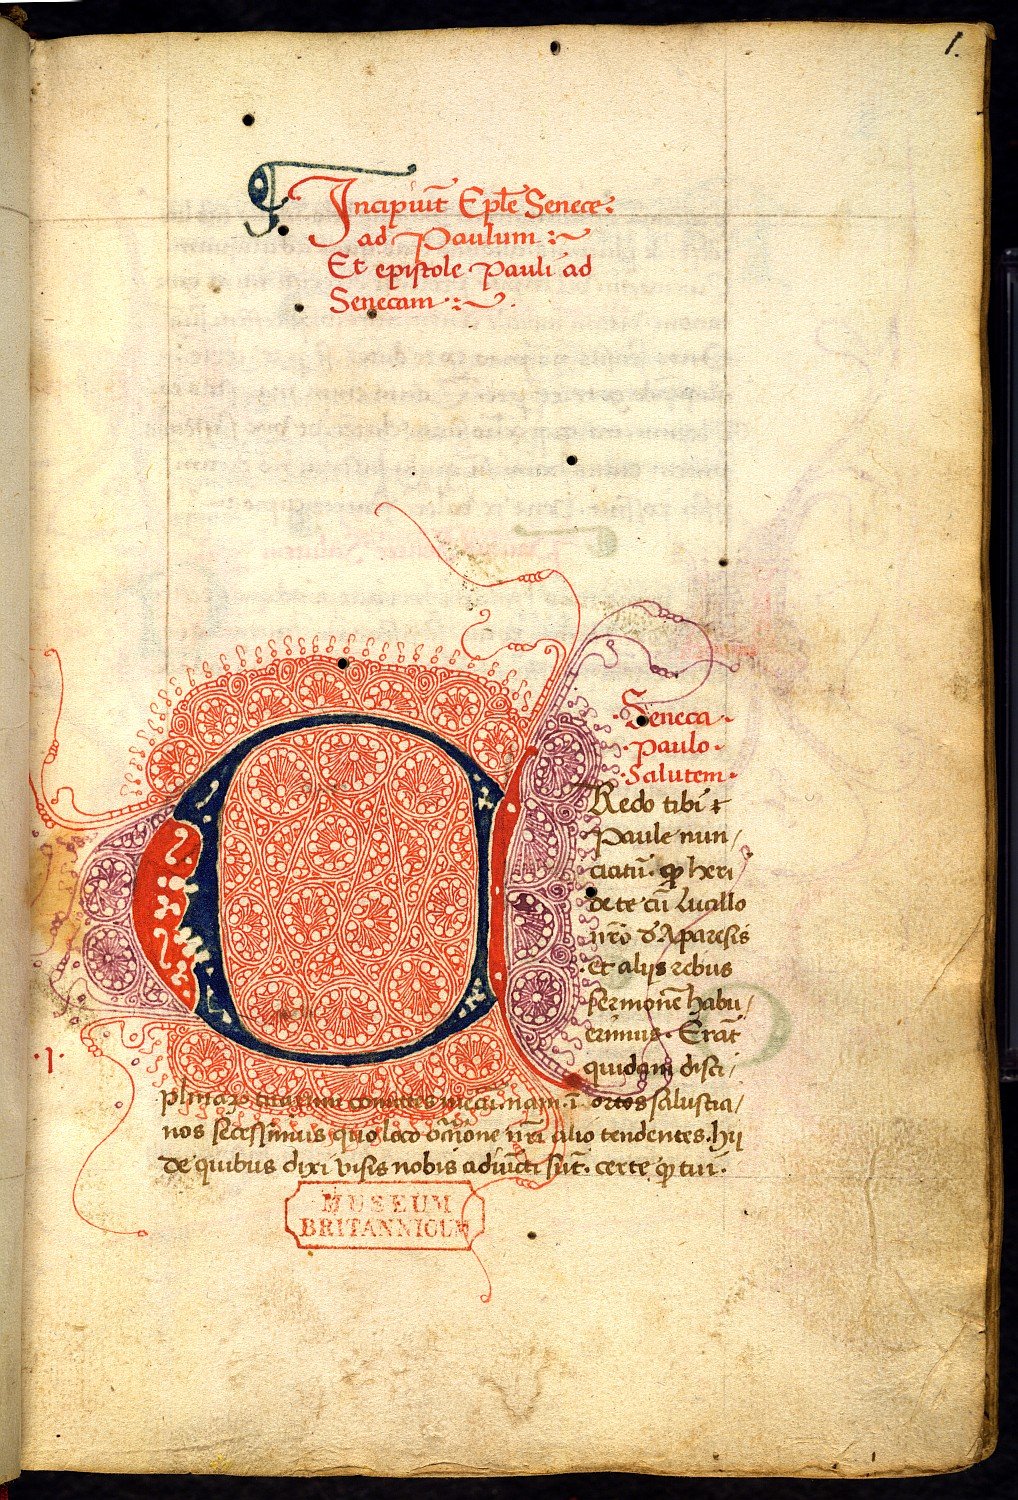 1.
Incipiūt Eptē Senece:
ad Paulum :~
Et epistole Pauli ad
Senecam :~.
·Seneca·
·Paulo·
·Salutem·
CRedo tibi
Paule nun/
ciatū· ꝙ heri
de te cū Lucillo
nrō d'Aparesis
·et alijs rebus
sermonē habu/
erimus· Erāt
quidam disci/
plinaꝝ tuarum comites mecū. nam ī ortos salustia/
nos secessimus quo loco occasione nrī alio tendentes· hij
de quibus dixi visis nobis adiūcti sūt· certe ꝙ tui·
·1·
MUSEUM
BRITANNICUM